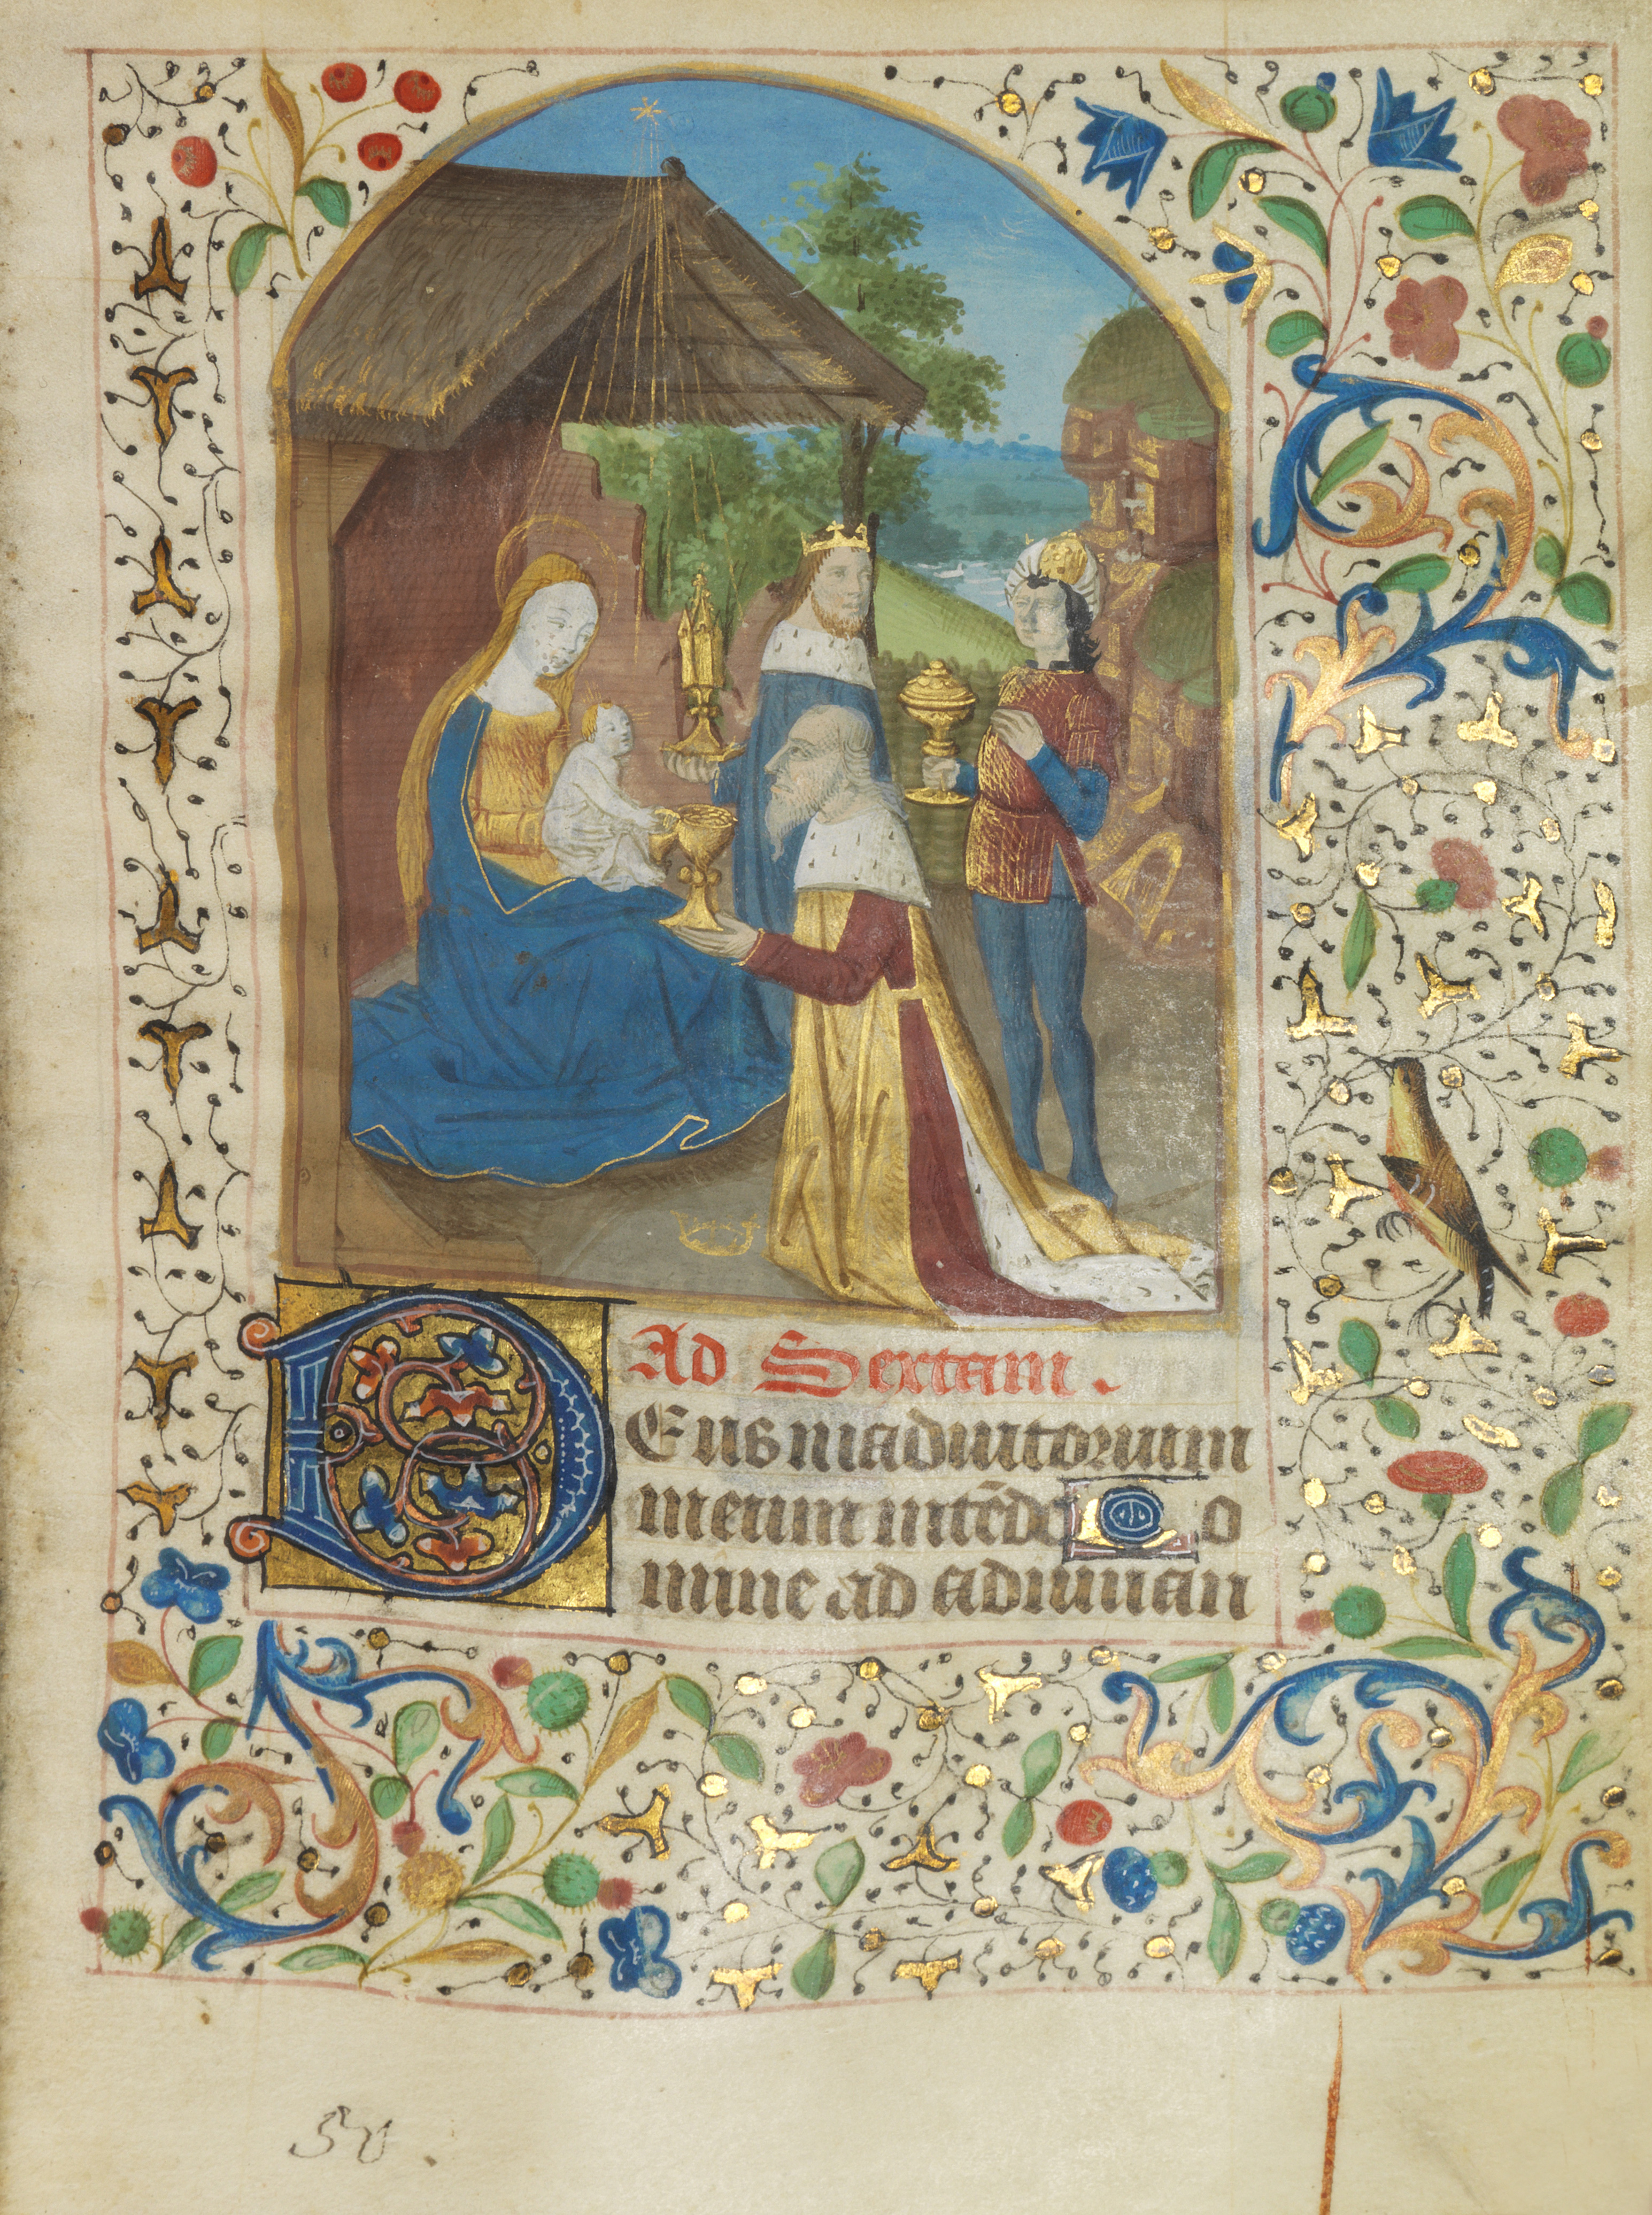 Ad Sextam.
DEus in adiutorium
meum intēde Do
mine ad adiuuan
50.